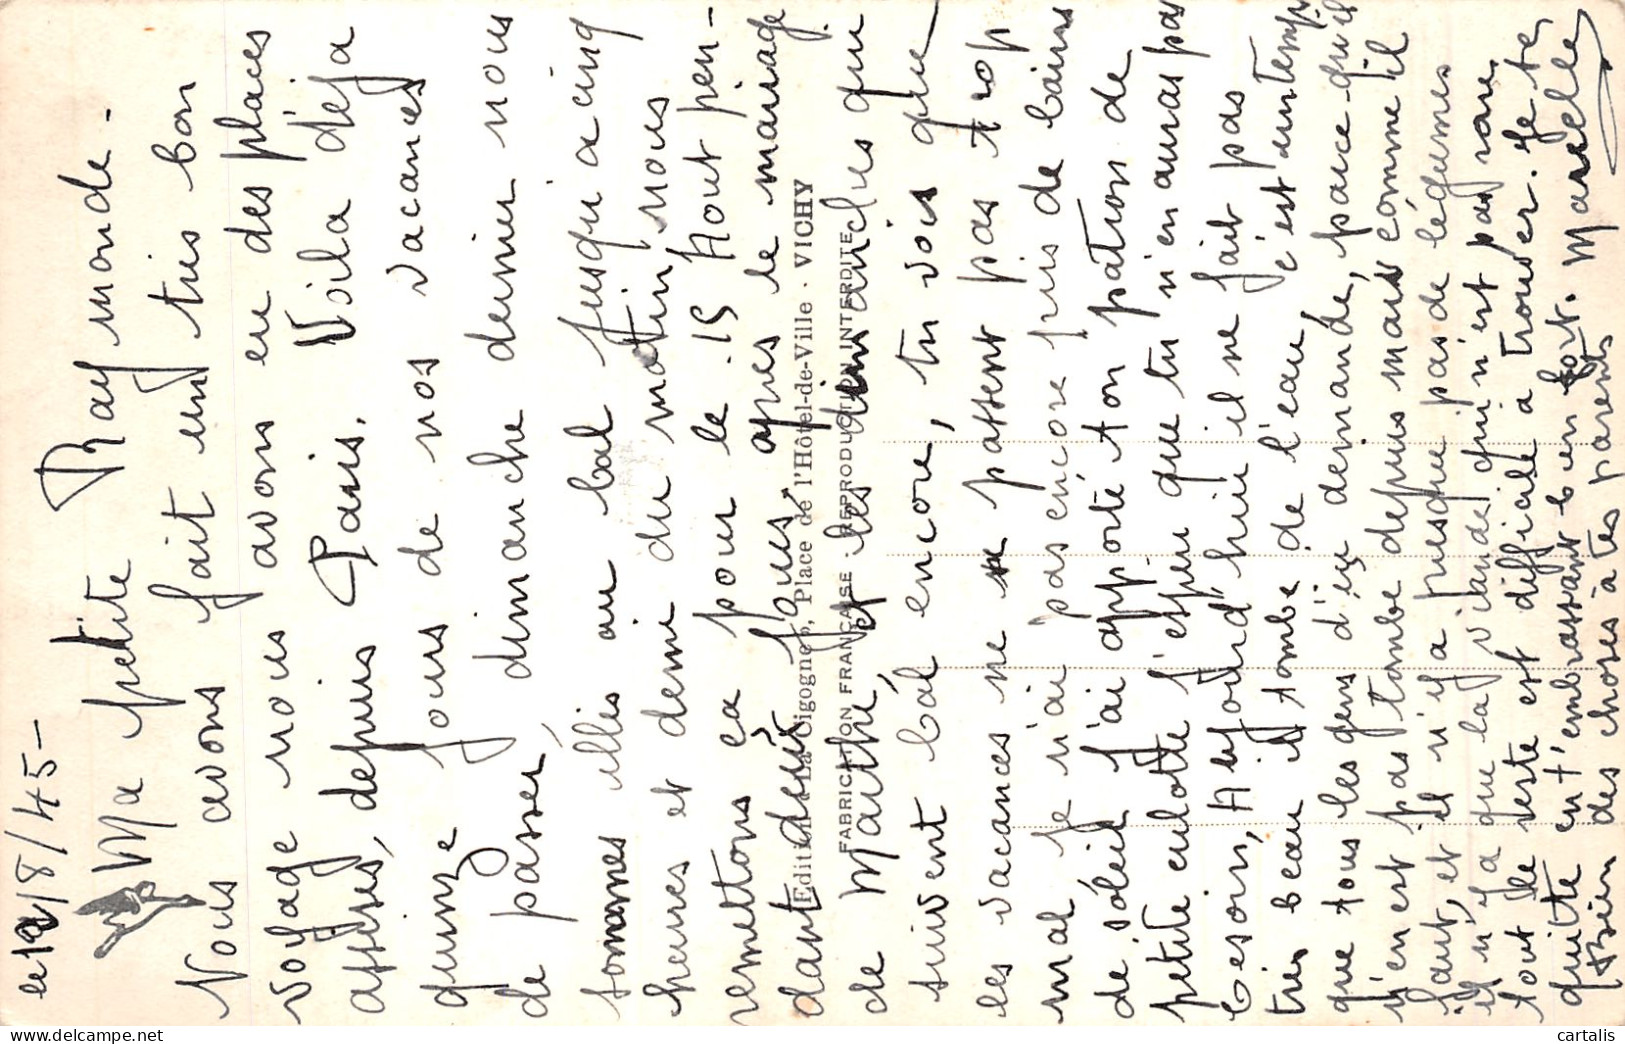 le 12/8/45 -
Ma petite Raymonde.
Nous avons fait un très bon
voyage nous avons eu des places
assises, depuis Paris. Voila déja
quinze jours de nos vacances
de passer, dimanche dernier nous
sommes allés au bal jusqu'a cinq
heures et demi du matin, nous
remettons ça pour le 15 Aout pen-
dant deux jours, apres le mariage
de Marthe, et les dimanches qui
suivent bal encore, tu vois que
les vacances ne se passent pas trop
mal je n'ai pas encore pris de bains
de soleil j'ai apporté ton patron de
petite culotte j'espere que tu n'en auras pas
besoin, Aujourd'huie il ne fait pas
très beau il tombe de l'eau, c'est un temps
que tous les gens d'ici demande, parce qu'il
n'en est pas tombe depuis mais comme il
faut, et il n'y a presque pas de légumes
il n'y a que la viande qui n'est pas rare
tout le reste est difficile a trouver. Je te
quitte en t'embrassant bien fort. Marcelle
Bien des choses à tes parents
Editions La Cigogne, Place de l'Hôtel-de-Ville · VICHY
FABRICATION FRANÇAISE · REPRODUCTION INTERDITE
cartalis